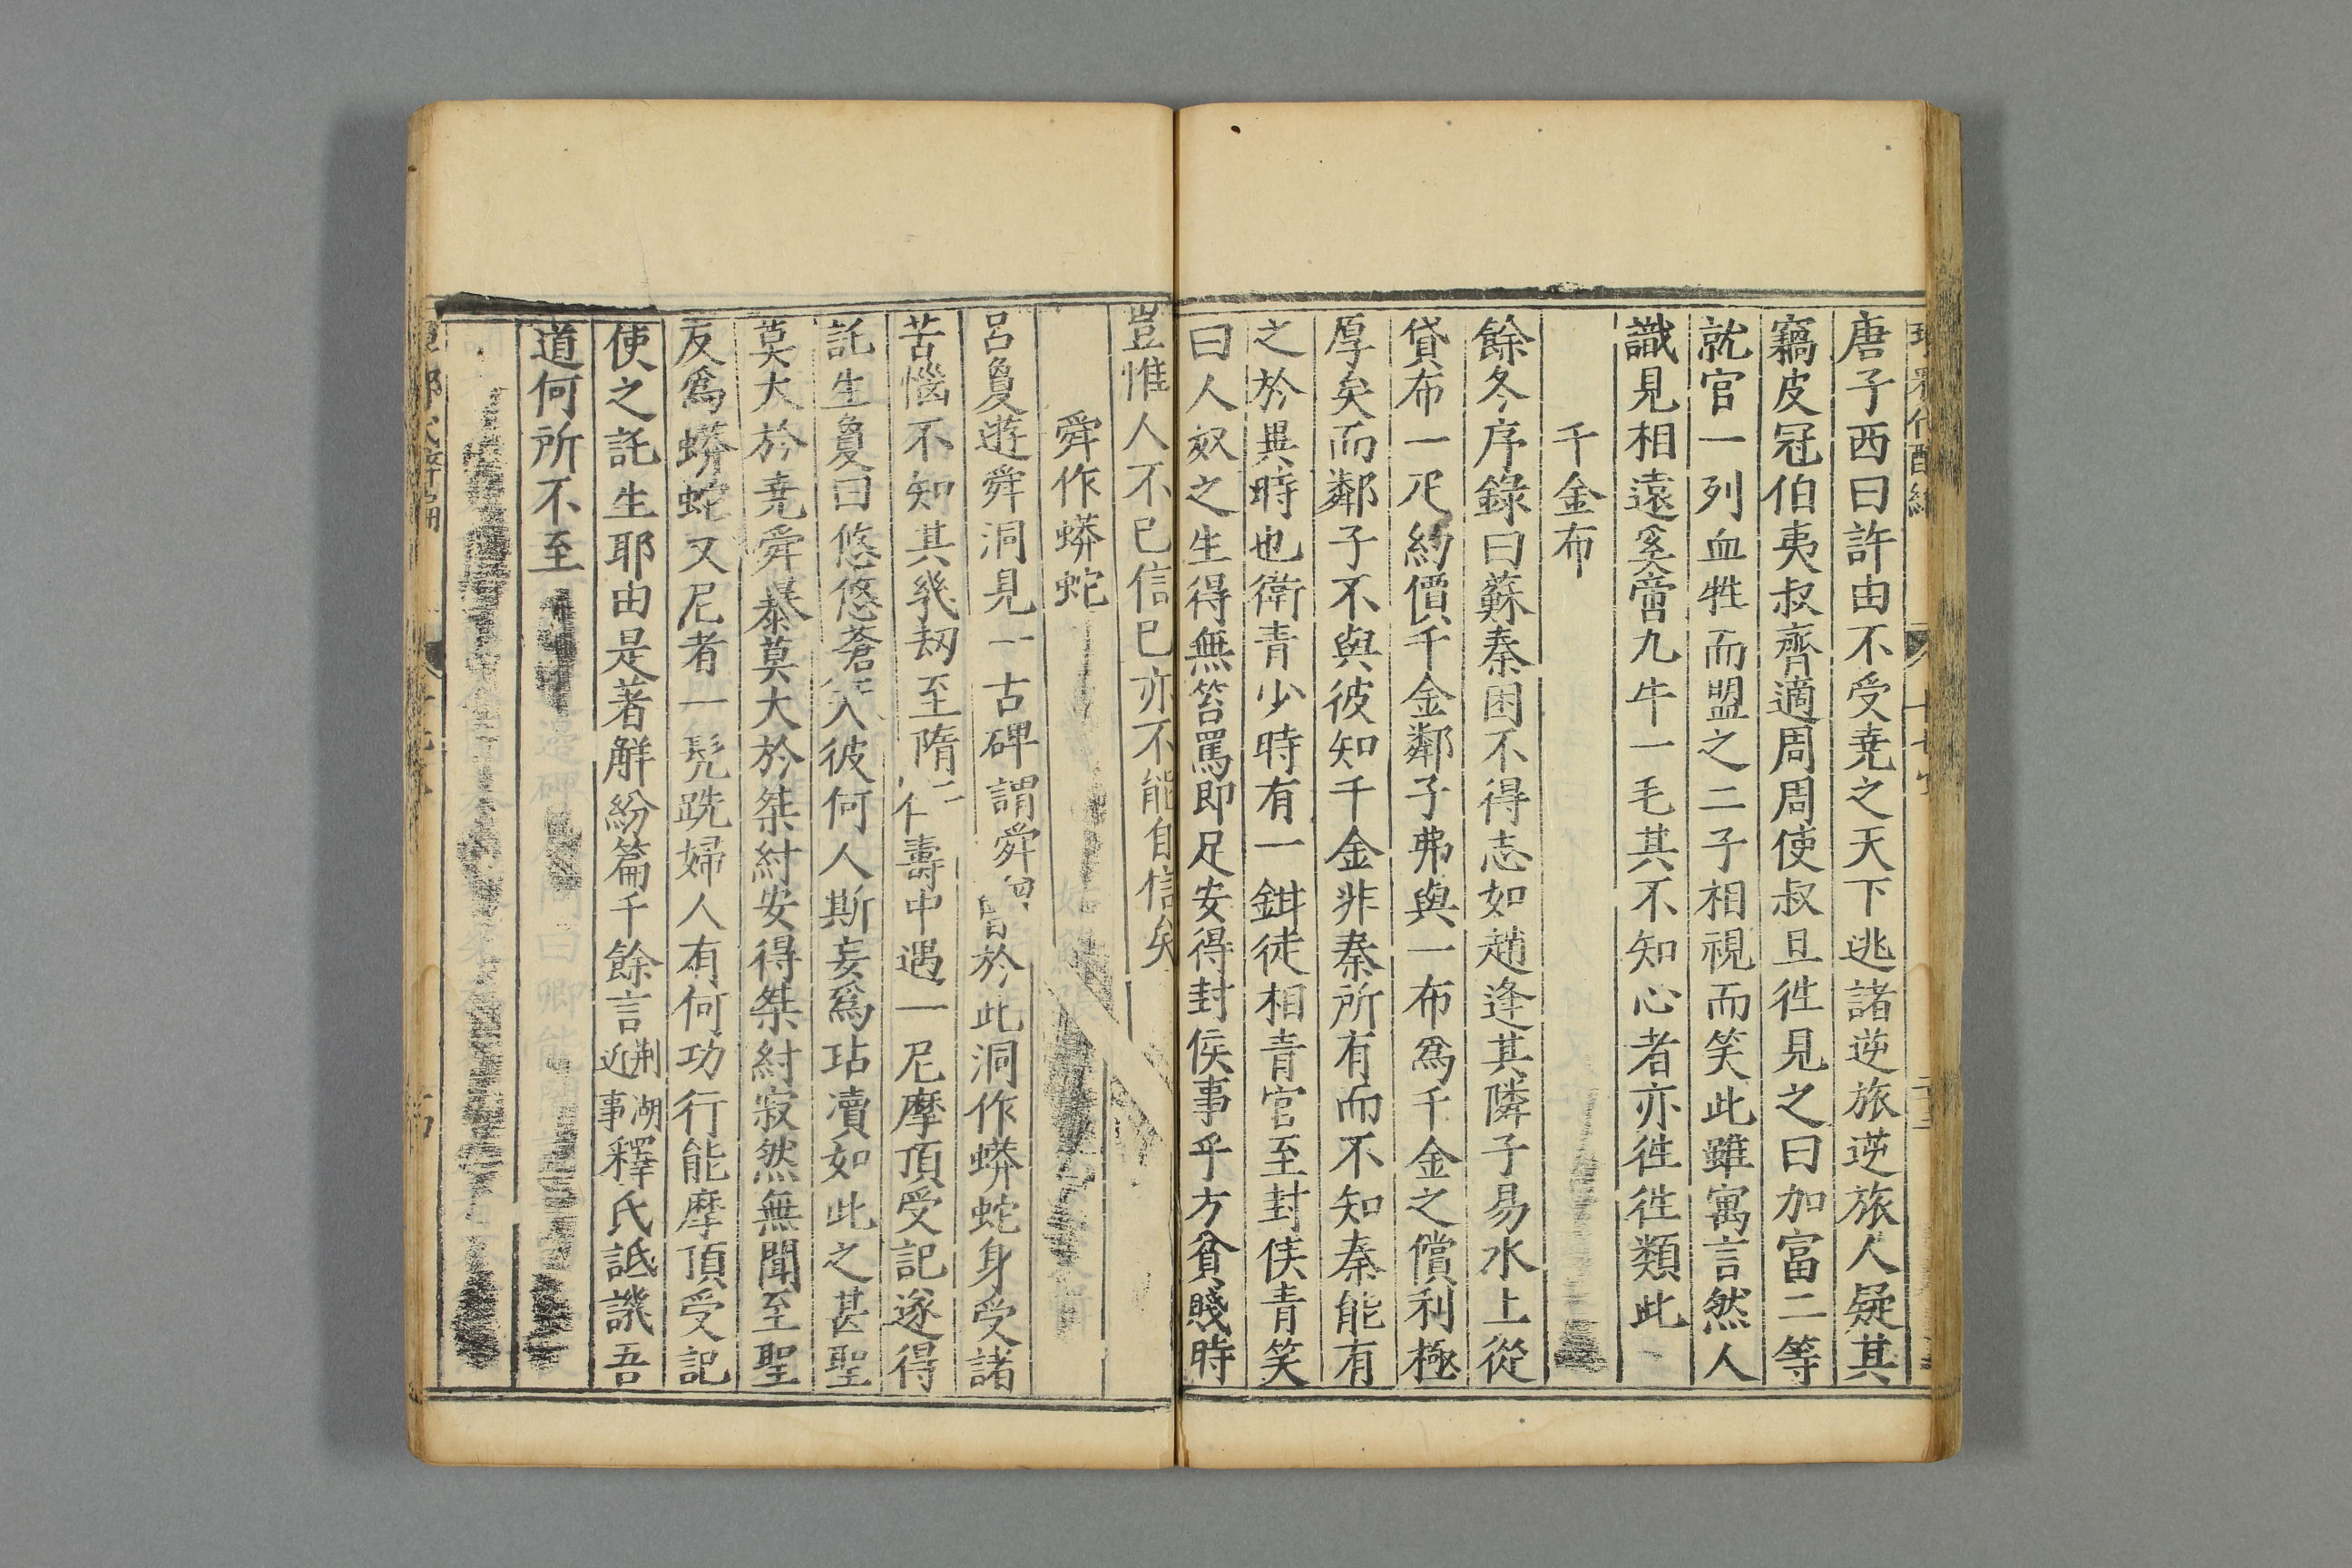 唐子西曰許由不受堯之天下逃諸逆旅逆旅人疑其
竊皮冠伯夷叔齊適周周使叔旦徃見之曰加富二等
就官一列血牲而盟之二子相視而笑此雖寓言然人
識見相遠奚啻九牛一毛其不知心者亦徃徃類此
千金布
餘冬序錄曰蘇秦困不得志如趙逢其隣子易水上從
貸布一疋約價千金鄰子弗與一布為千金之償利極
厚矣而鄰子不與彼知千金非秦所有而不知秦能有
之於異時也衛青少時有一鉗徒相青官至封侯青笑
曰人奴之生得無笞罵即足安得封侯事乎方貧賤時
豈惟人不已信已亦不能自信矣
舜作蟒蛇
呂夐遊舜洞見一古碑謂舜曾於此洞作蟒蛇身受諸
苦惱不知其幾刼至隋仁壽中遇一尼摩頂受記遂得
託生夐曰悠悠蒼天彼何人斯妄為玷瀆如此之甚聖
莫大於堯舜暴莫大於桀紂安得桀紂寂然無聞至聖
反為蟒蛇又尼者一髡跣婦人有何功行能摩頂受記
使之託生耶由是著解紛篇千餘言荆湖近事釋氏詆譏吾
道何所不至